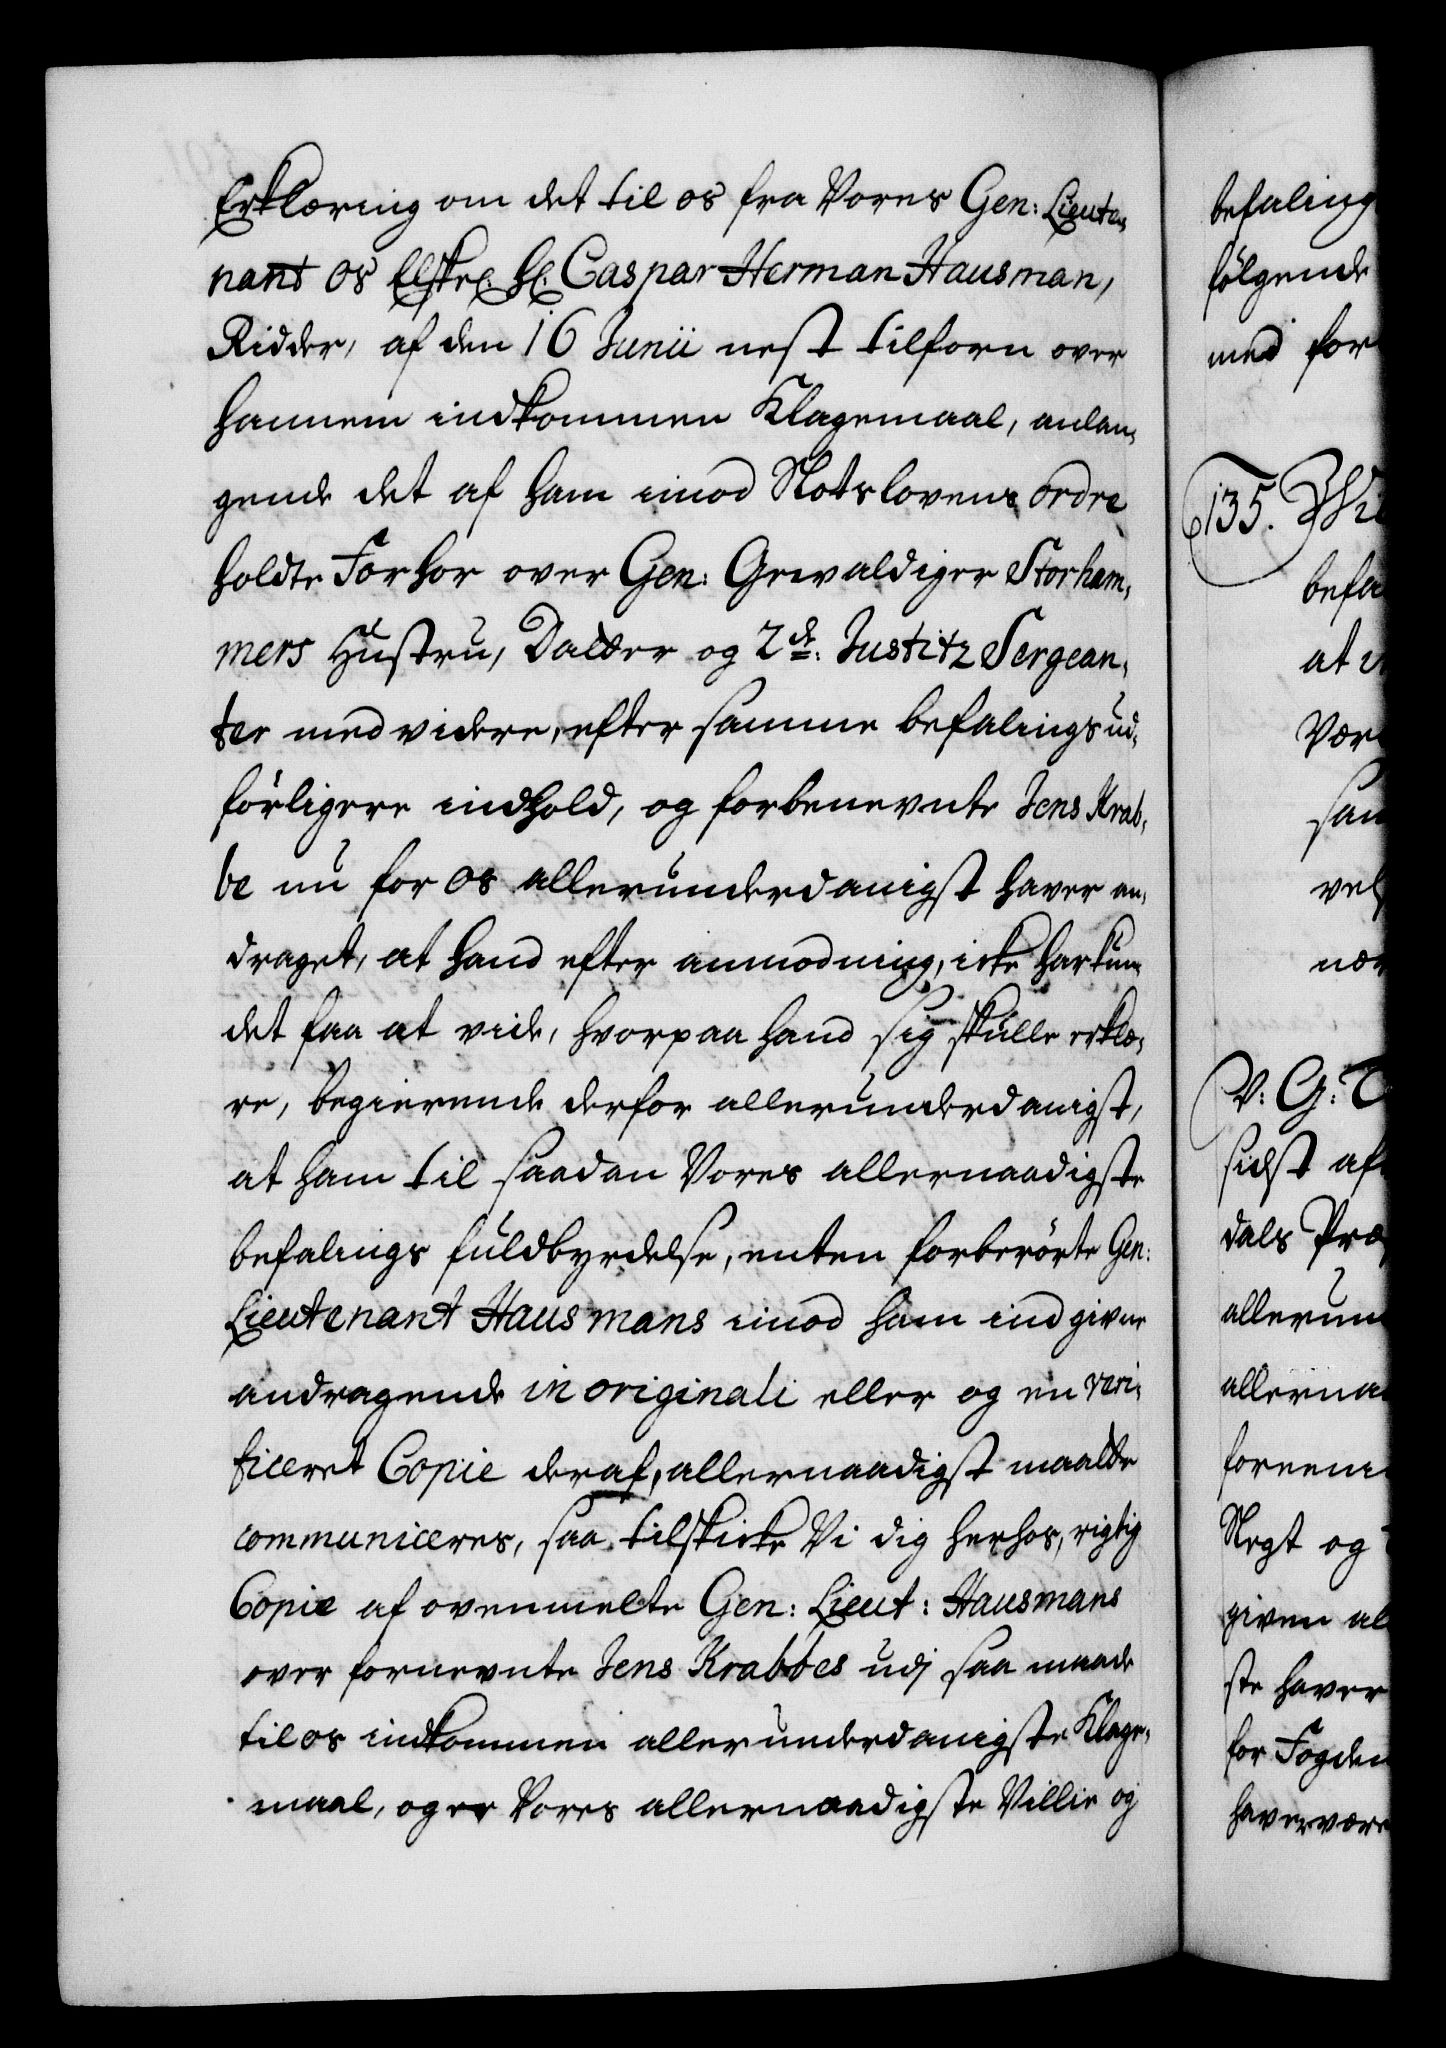 Erklæring om det til os fra Vores Gen: Lieute,
nant os Elskel: Hr: Caspar Herman Hausman,
Ridder, af den 16 Junii nest tilforn over
hannem indkommen Klagemaal, anlan,
gende det af ham imod Slotslovens ordre
holdte Forhør over Gen: Gewaldiger Storham,
mers Hustru, Datter og 2de: Justitz Sergean,
ter med videre, efter samme befalings ud,
førligere indhold, og forbenevnte Jens Krab,
be nu for os allerunderdanigst haver an,
draget, at hand efter anmodning, icke har kun,
det faa at vide, hvorpaa hand sig skulle erklæ,
re, begierende derfor allerunderdanigst,
at ham til saadan Vores allernaadigste
befalings fuldbyrdelse, enten forberørte Gen:
Lieutenant Hausmans imod ham indgivne
andragende in originali eller og en veri,
ficeret Copie deraf, allernaadigst maatte
communiceres, saa tilskicke Vi dig herhos, rigtig
Copie af ovenmelte Gen: Lieut: Hausmans
over fornevnte Jens Krabbes udj saa maade
til os indkommen allerunderdanigste Klage,
maal, og er Vores allernaadigste Villie og
befaling
følgende
med for
135. Wi
befa
at
Vær
sam
vel
nær
V: G: T
sidst af
dals Præ
allerun
allerna
foreene
Slegt og
given al
ste haver
for Fogden
haver være